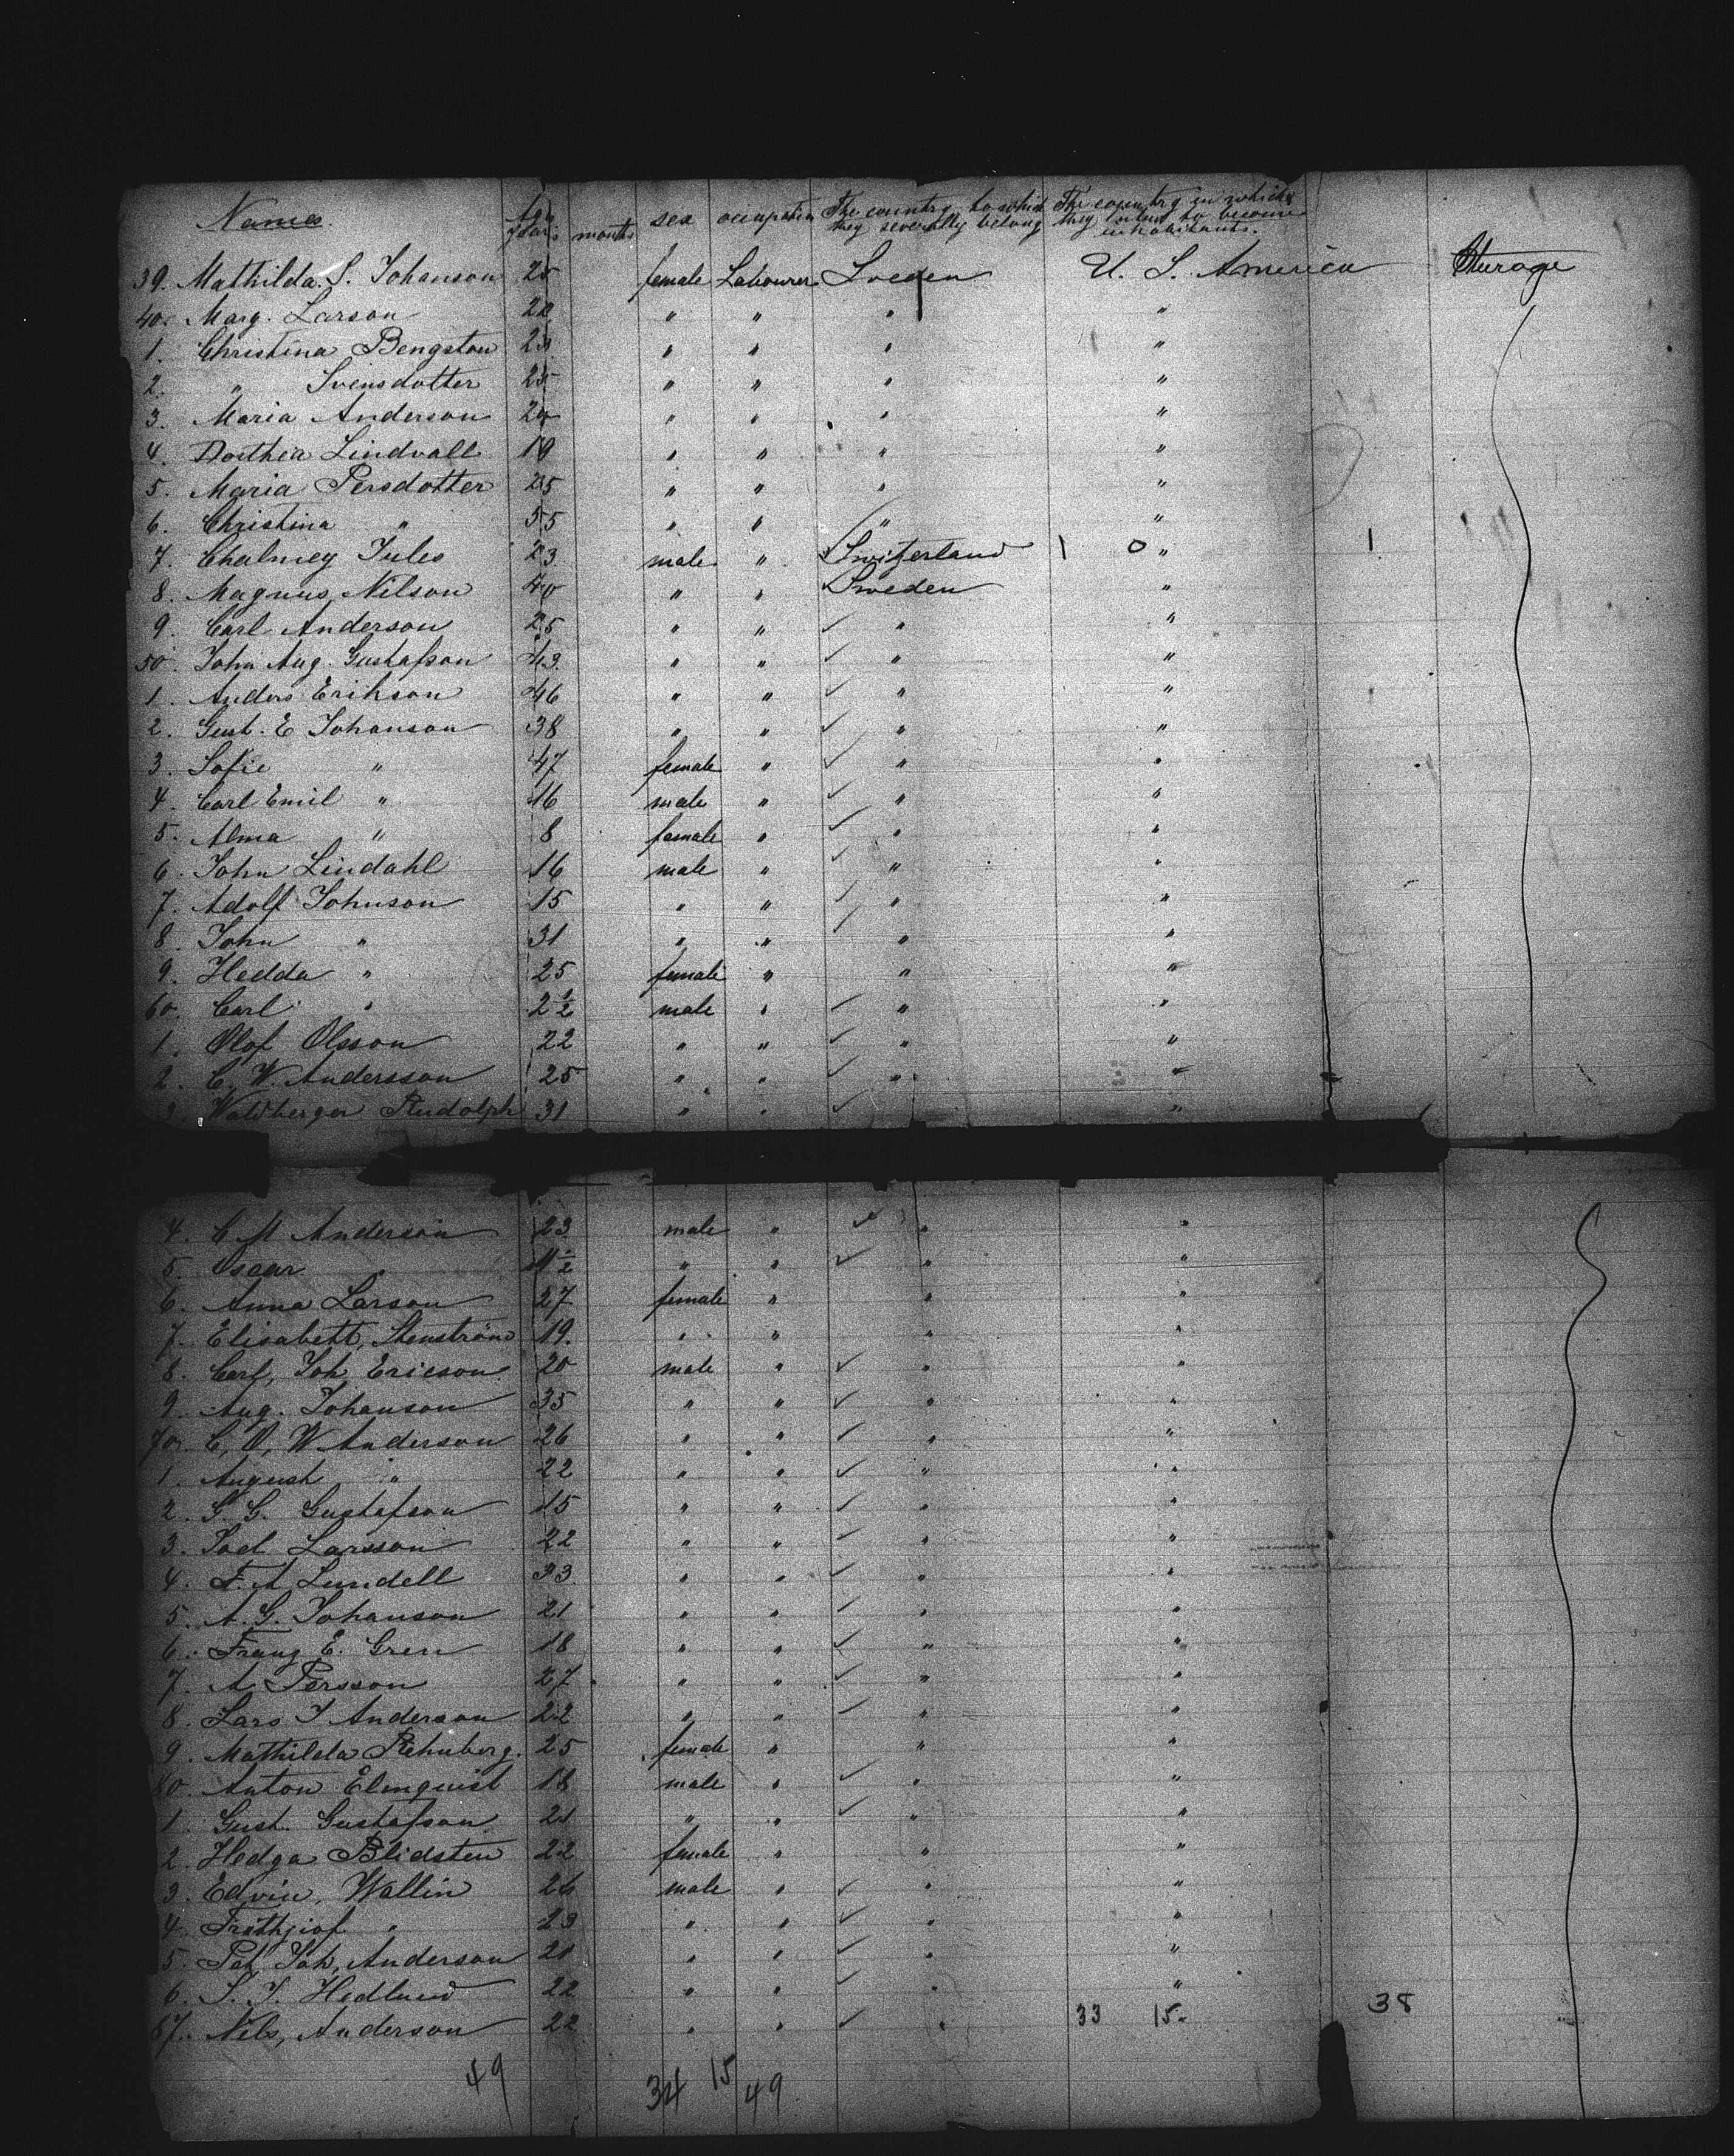 Names Age years months sex occupation The country to which they severally belong The country in which they intend to become inhabitants.
39. Mathilda S. Johanson 25 female Labourer Sveden U. S. America Sterage
40. Marg. Larson " " " "
1. Christina Bengston " " " "
2. " Svensdotter 25 " " " "
3. Maria Anderson " " " "
4. Dorthea Lindvall 19 " " " "
5. Maria Persdotter 25 " " " "
6. Christina " 55 " " " "
7. Chalmey Jules 23 male " Switzerland 1 0 " 1
8. Magnus Nilson 40 " " Sweden "
9. Carl Anderson 25 " " ✓ " "
50. John Aug. Gustafson 43 " " ✓ " "
1. Anders Erikson 46 " " ✓ " "
2. Gust. E Johanson 38 " " ✓ " "
3. Sofie " 47 female " ✓ " "
4. Carl Emil " 16 male " ✓ " "
5. Alma " 8 female " ✓ " "
6. John Lindahl 16 male " ✓ " "
7. Adolf Johnson 15 " " ✓ " "
8. John " 31 " " ✓ " "
9. Hedda " 25 female " " "
60. Carl " 2 1/2 male " ✓ " "
1. Olof Olsson 22 " " ✓ " "
2. C. W. Andersson 25 " " ✓ " "
3 Waldberger Rudolph 31 " " ✓ "
4. C M Anderson 23 male " ✓ " "
5. Oscar " " ✓ " "
6. Anna Larson 27 female " " "
7. Elisabett, Stenström 19. " " " "
8. Carl, Joh Ericson 20 male " ✓ " "
9. Aug. Johanson 35 " " ✓ " "
70. C, O, W Anderson 26 " " ✓ " "
1. August " 22 " " ✓ " "
2. G. G. Gustafson 15 " " ✓ " "
3. Joel Larsson 22 " " ✓ " "
4. F. A Lundell 33 " " ✓ " "
5. A. G. Johanson 21 " " ✓ " "
6. Franz E. Gren 18 " " ✓ " "
7. A Persson 27 " " ✓ " "
8. Lars J Anderson 22 " " ✓ " "
9. Mathilda Rehnberg. 25 female " " "
80 Anton Elmquist 18 male " ✓ " "
1. Gust. Gustafson 21 " " ✓ " "
2. Hedga Blidsten 22 female " " "
3. Edvin, Wallin 26 male " ✓ " "
4. Frithjiof " 23 " " ✓ " "
5. Pet Joh, Anderson 21 " " ✓ " "
6. S. J. Hedlund 22 " " ✓ " "
87. Nels, Anderson 22 " " ✓ " 33 15. 38
49 34 15 49